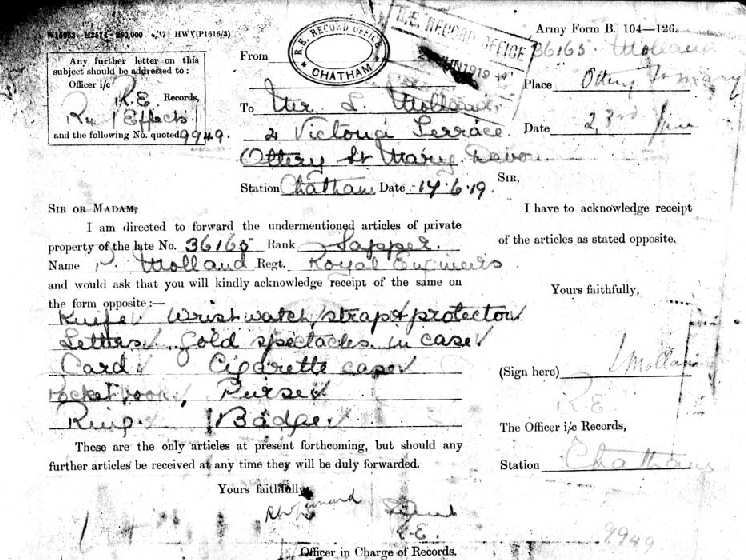 Army Form B. 104—126.
R.E. RECORD OFFICE
CHATHAM
R.E. RECORD OFFICE
1919
Any further letter on this
subject should be addressed to:
Officer i/c
R.E. Records,
Effects
and the following No. quoted 9949.
From
To Mr. L. Molland
2 Victoria Terrace
Ottery St Mary Devon
Station Chatham Date 17.6.19.
SIR OR MADAM,
I am directed to forward the undermentioned articles of private
property of the late No. 36165 Rank Sapper.
Name P. Molland Regt. Royal Engineers
and would ask that you will kindly acknowledge receipt of the same on
the form opposite:—
Knife Wrist watch, strap & protector
Letters. Gold spectacles in case
Card Cigarette case
Pocket book, Purse
Ring. Badge
These are the only articles at present forthcoming, but should any
further articles be received at any time they will be duly forwarded.
Yours faithfully,
R.E.
Officer in Charge of Records.
36165 Molland
Place Ottery St Mary
Date 23rd June
SIR,
I have to acknowledge receipt
of the articles as stated opposite.
Yours faithfully,
(Sign here) L Molland
R.E.
The Officer i/c Records,
Station Chatham
9949